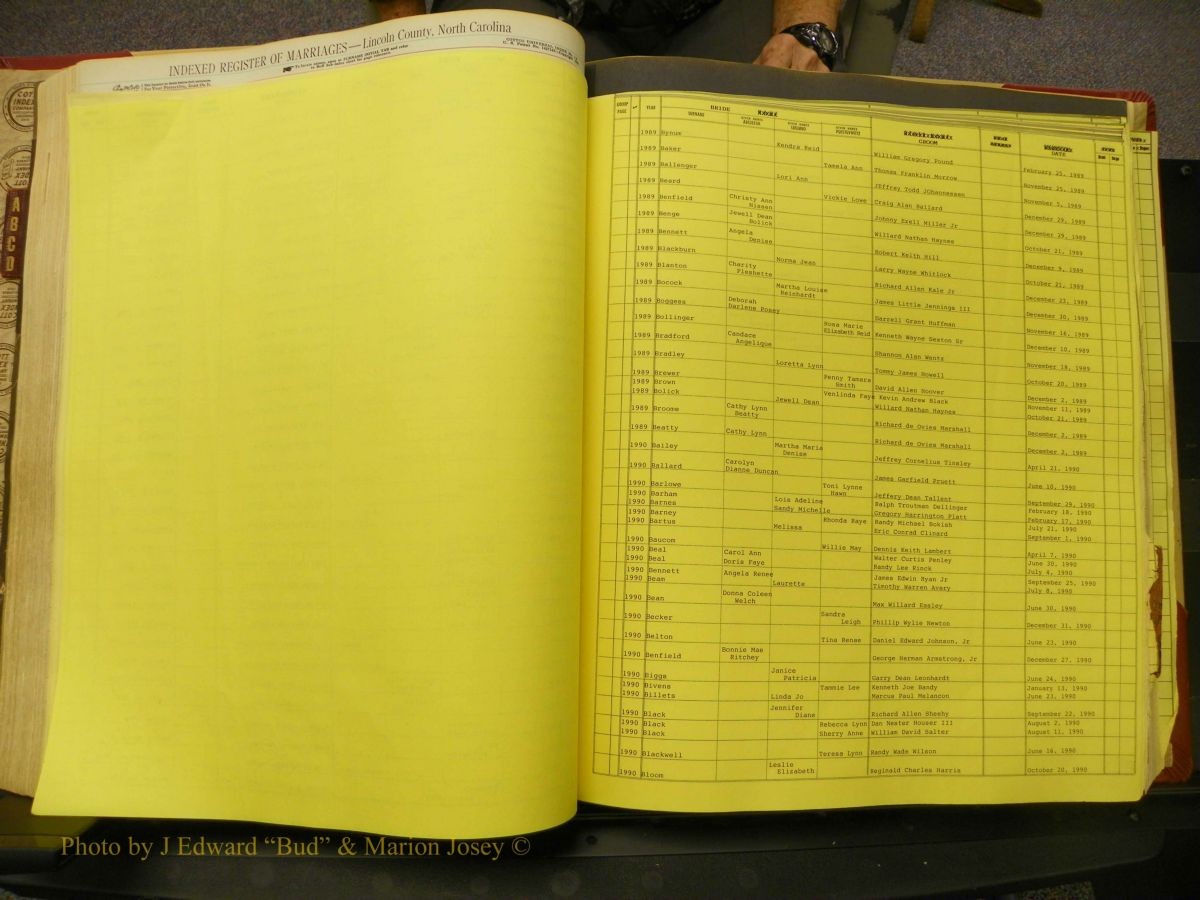 INDEXED REGISTER OF MARRIAGES—Lincoln County, North Carolina
A
B
C
D
GROUP PAGE YEAR BRIDE SURNAME GROOM DATE
1989 Bynum Kendra Reid William Gregory Pound February 25, 1989
1989 Baker Tamela Ann Thomas Franklin Morrow November 25, 1989
1989 Ballenger Lori Ann Jeffrey Todd JOhannessen November 5, 1989
1989 Beard Vickie Lowe Craig Alan Ballard December 29, 1989
1989 Benfield Christy Ann Nissen Johnny Exell Miller Jr December 29, 1989
1989 Benge Jewell Dean Bolick Willard Nathan Haynes October 21, 1989
1989 Bennett Angela Denise Robert Keith Hill December 9, 1989
1989 Blackburn Norma Jean Larry Wayne Whitlock October 21, 1989
1989 Blanton Charity Pleshette Richard Allen Kale Jr December 23, 1989
1989 Bocock Martha Louise Reinhardt James Little Jennings III December 30, 1989
1989 Boggess Deborah Darlene Posey Darrell Grant Huffman November 16, 1989
1989 Bollinger Rosa Marie Elizabeth Reid Kenneth Wayne Sexton Sr December 10, 1989
1989 Bradford Candace Angelique Shannon Alan Wantz November 18, 1989
1989 Bradley Loretta Lynn Tommy James Howell October 20, 1989
1989 Brewer Penny Tamara Smith David Allen Hoover December 2, 1989
1989 Brown Venlinda Faye Kevin Andrew Black November 11, 1989
1989 Bolick Jewell Dean Willard Nathan Haynes October 21, 1989
1989 Broome Cathy Lynn Beatty Richard de Ovies Marshall December 2, 1989
1989 Beatty Cathy Lynn Richard de Ovies Marshall December 2, 1989
1990 Bailey Martha Maria Denise Jeffrey Cornelius Tinsley April 21, 1990
1990 Ballard Carolyn Dianne Duncan James Garfield Pruett June 10, 1990
1990 Barlowe Toni Lynne Hawn Jeffery Dean Tallent September 29, 1990
1990 Barham Lois Adeline Ralph Troutman Dellinger February 18, 1990
1990 Barnes Sandy Michelle Gregory Harrington Platt February 17, 1990
1990 Barney Rhonda Faye Randy Michael Bokish July 21, 1990
1990 Bartus Melissa Eric Conrad Clinard September 1, 1990
1990 Baucom Willie May Dennis Keith Lambert April 7, 1990
1990 Beal Carol Ann Walter Curtis Penley June 30, 1990
1990 Beal Doris Faye Randy Lee Rinck July 4, 1990
1990 Bennett Angela Renee James Edwin Ryan Jr September 25, 1990
1990 Beam Laurette Timothy Warren Avery July 8, 1990
1990 Bean Donna Coleen Welch Max Willard Emsley June 30, 1990
1990 Becker Sandra Leigh Phillip Wylie Newton December 31, 1990
1990 Belton Tina Renae Daniel Edward Johnson, Jr June 23, 1990
1990 Benfield Bonnie Mae Ritchey George Herman Armstrong, Jr December 27, 1990
1990 Biggs Janice Patricia Garry Dean Leonhardt June 24, 1990
1990 Bivens Tammie Lee Kenneth Joe Bandy January 13, 1990
1990 Billets Linda Jo Marcus Paul Melancon June 23, 1990
1990 Black Jennifer Diane Richard Allen Sheehy September 22, 1990
1990 Black Rebecca Lynn Dan Nester Houser III August 2, 1990
1990 Black Sherry Anne William David Salter August 11, 1990
1990 Blackwell Teresa Lynn Randy Wade Wilson June 16, 1990
1990 Bloom Leslie Elizabeth Reginald Charles Harris October 20, 1990
Photo by J Edward “Bud” & Marion Josey ©